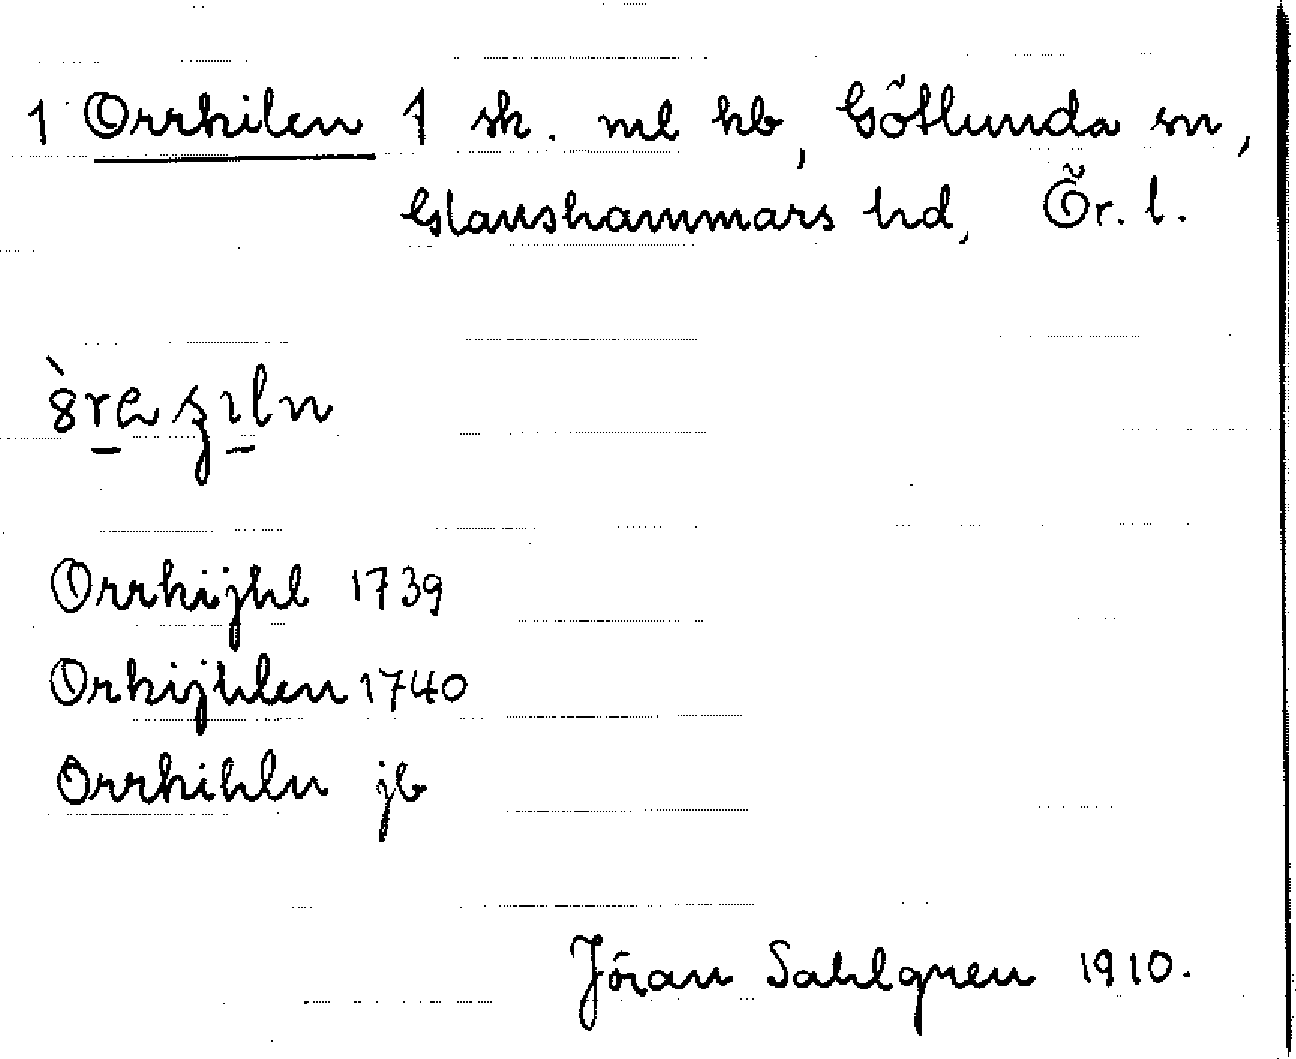 1 Orrkilen 1 sk. ml kb, Götlunda sn,
Glanshammars hd, Ör. l.
Orrkijhl 1739
Orkijhlen 1740
Orrkihln jb
Jöran Sahlgren 1910.